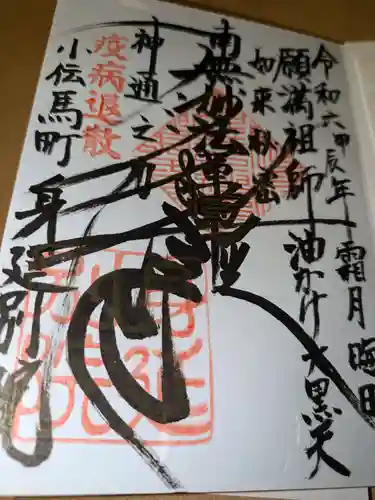 令和六甲辰年 霜月 晦日
願満祖師 油かけ大黒天
如来秘密
南無妙法蓮華経
神通之力
疫病退散
小伝馬町
身延別院